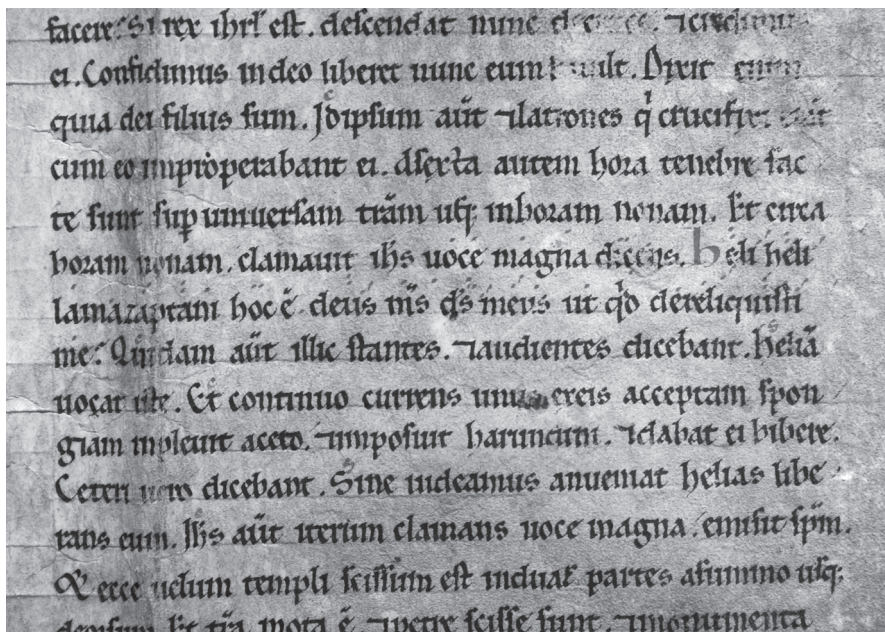 facere. Si rex ihrl̄ est. descendat nunc de cruce. ⁊credimus
ei. Confidimus indeo liberet nunc eum si uult. Dixit enim
quia dei filius sum. Idipsum aūt ⁊latrones q̇ crucifixi erāt
cum eo improperabant ei. Asexta autem hora tenebre fac
te sunt sup uniuersam trām usq; inhoram nonam. Et circa
horam nonam. clamauit ihs uoce magna dicens. heli heli
lamazaptani hoc ē. deus ms̄ ds̄ meus ut qd̄ dereliquisti
me? Quidam aūt illic stantes. ⁊audientes dicebant. heliā
uocat iste. Et continuo currens unus exeis acceptam spon
giam inpleuit aceto. ⁊imposuit haruncini. ⁊dabat ei bibere.
Ceteri uero dicebant. Sine uideamus anueniat helias libe
rans eum. Ihs aūt iterum clamans uoce magna. emisit spm̄.
Et ecce uelum templi scissum est induas partes asummo usq;
deorsum. Et trā mota ē ⁊petre scisse sunt. ⁊monumenta